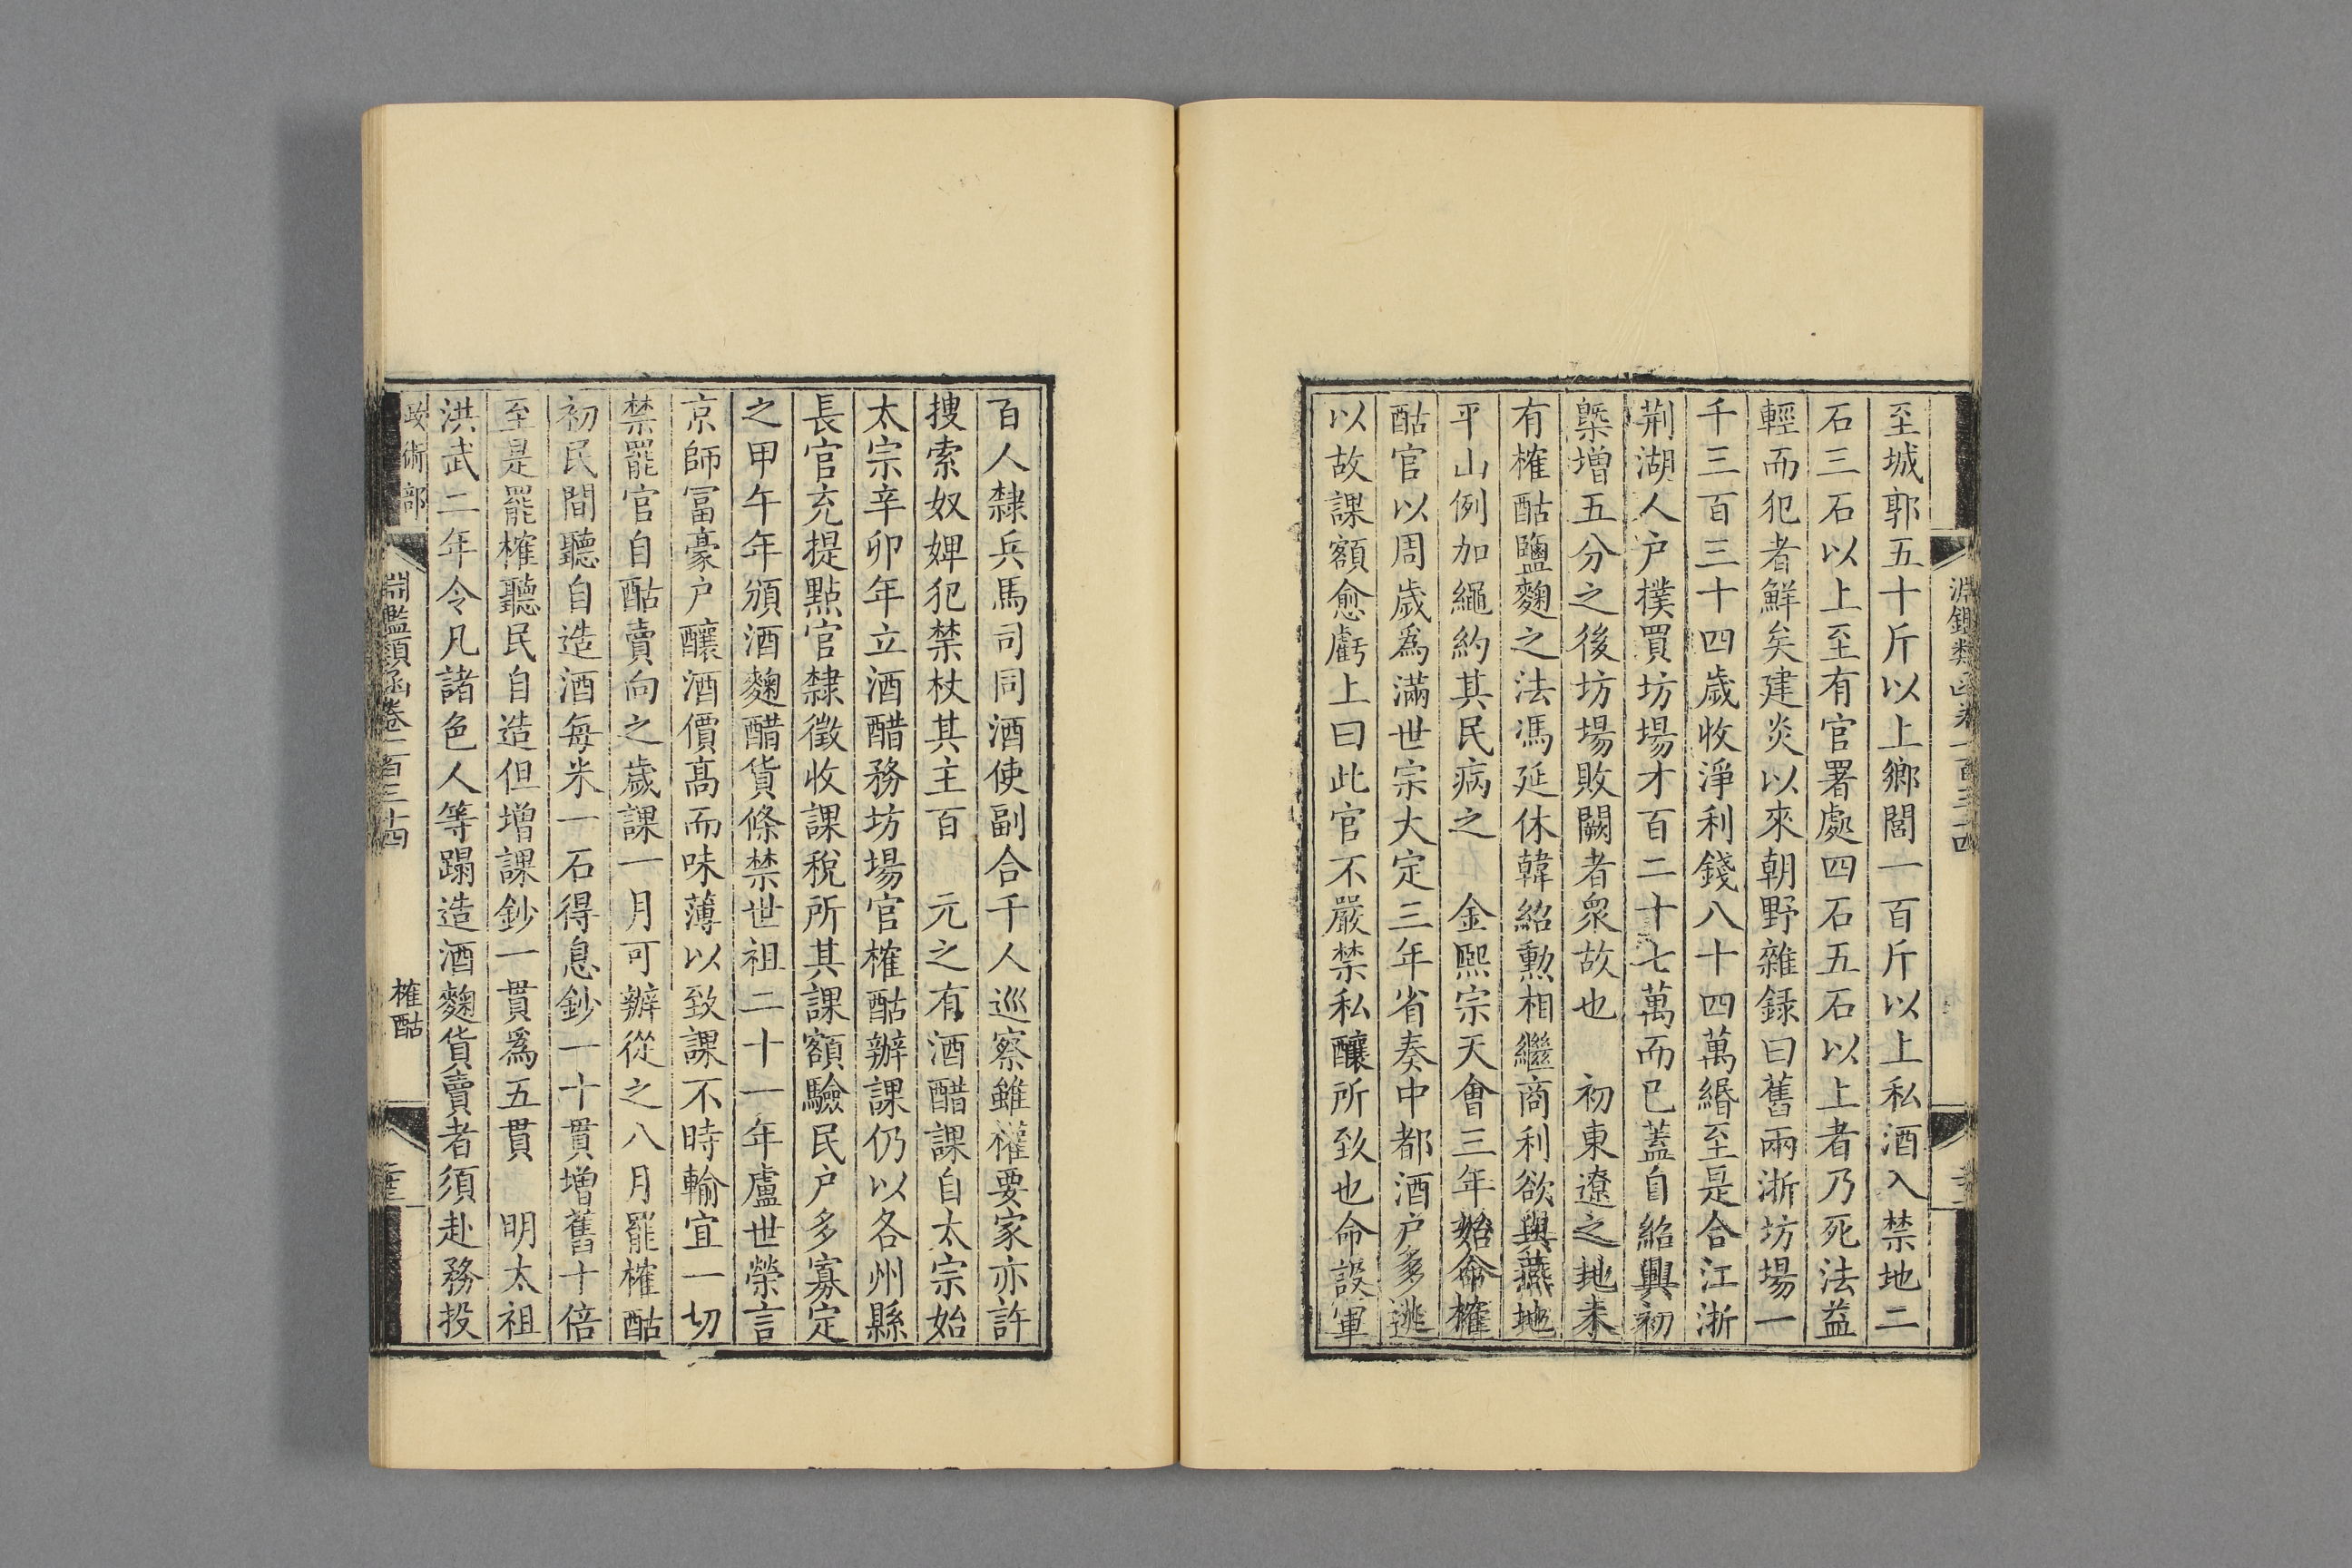 至城郭五十斤以上鄉閭一百斤以上私酒入禁地二
石三石以上至有官署處四石五石以上者乃死法益
輕而犯者鮮矣建炎以來朝野雜録曰舊兩浙坊場一
千三百三十四歲收淨利錢八十四萬緡至是合江浙
荆湖人户撲買坊場才百二十七萬而已蓋自紹興初
槩增五分之後坊場敗闕者衆故也　初東遼之地未
有榷酤鹽麴之法馮延休韓紹勲相繼商利欲與燕地
平山例加繩約其民病之　金熙宗天會三年始命榷
酤官以周歲爲滿世宗大定三年省奏中都酒户多逃
以故課額愈虧上曰此官不嚴禁私釀所致也命設軍
百人隸兵馬司同酒使副合千人巡察雖權要家亦許
搜索奴婢犯禁杖其主百　元之有酒醋課自太宗始
太宗辛卯年立酒醋務坊場官榷酤辦課仍以各州縣
長官充提點官隸徵收課稅所其課額驗民户多寡定
之甲午年頒酒麴醋貨條禁世祖二十一年盧世榮言
京師冨豪户釀酒價高而味薄以致課不時輸宜一切
禁罷官自酤賣向之歲課一月可辦從之八月罷榷酤
初民間聽自造酒每米一石得息鈔一十貫增舊十倍
至是罷榷聽民自造但增課鈔一貫爲五貫　明太祖
洪武二年令凡諸色人等蹋造酒麴貨賣者須赴務投
政術部　淵鑑類函卷一百三十四　榷酤